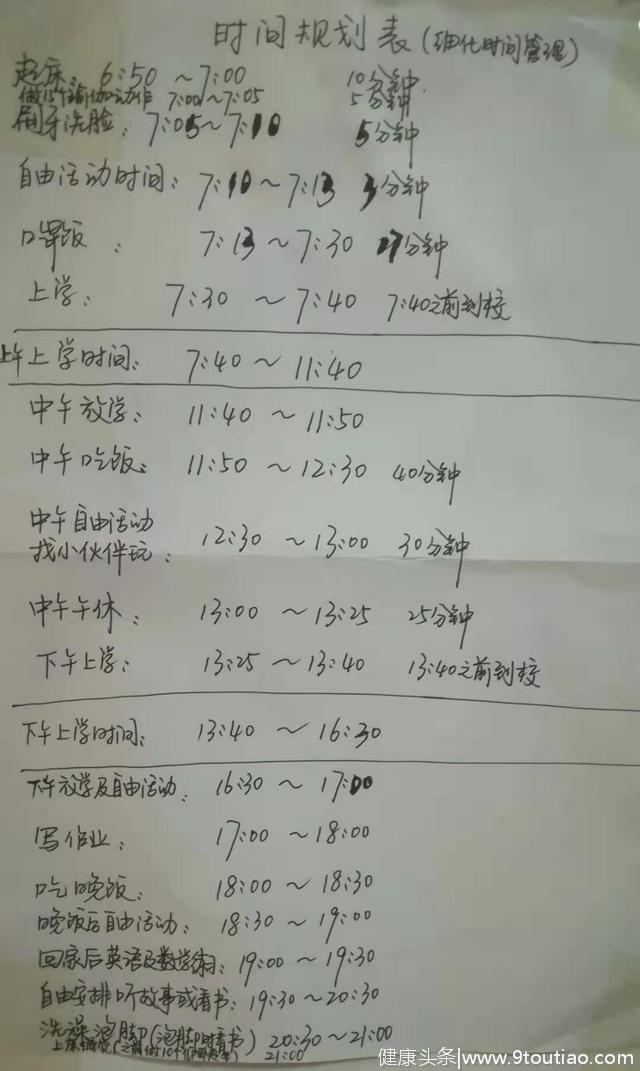 时间规划表(细化时间管理)
起床: 6:50 ~7:00 10分钟
做15个瑜伽动作 7:00~7:05 5分钟
刷牙洗脸: 7:05~7:10 5分钟
自由活动时间: 7:10~7:13 3分钟
吃早饭: 7:13~7:30 17分钟
上学: 7:30 ~7:40 7:40之前到校
上午上学时间: 7:40~11:40
中午放学: 11:40 ~11:50
中午吃饭: 11:50 ~12:30 40分钟
中午自由活动
找小伙伴玩: 12:30 ~13:00 30分钟
中午午休: 13:00 ~13:25 25分钟
下午上学: 13:25~13:40 13:40之前到校
下午上学时间: 13:40 ~16:30
下午放学及自由活动: 16:30 ~17:00
写作业: 17:00 ~18:00
吃晚饭: 18:00 ~18:30
晚饭后自由活动: 18:30 ~19:00
回家后英语及数学: 19:00~19:30
自由安排听故事或看书: 19:30~20:30
洗澡泡脚(泡脚时看书) 20:30~21:00
上床睡觉(之前做10个 21:00
健康头条|www.9toutiao.com